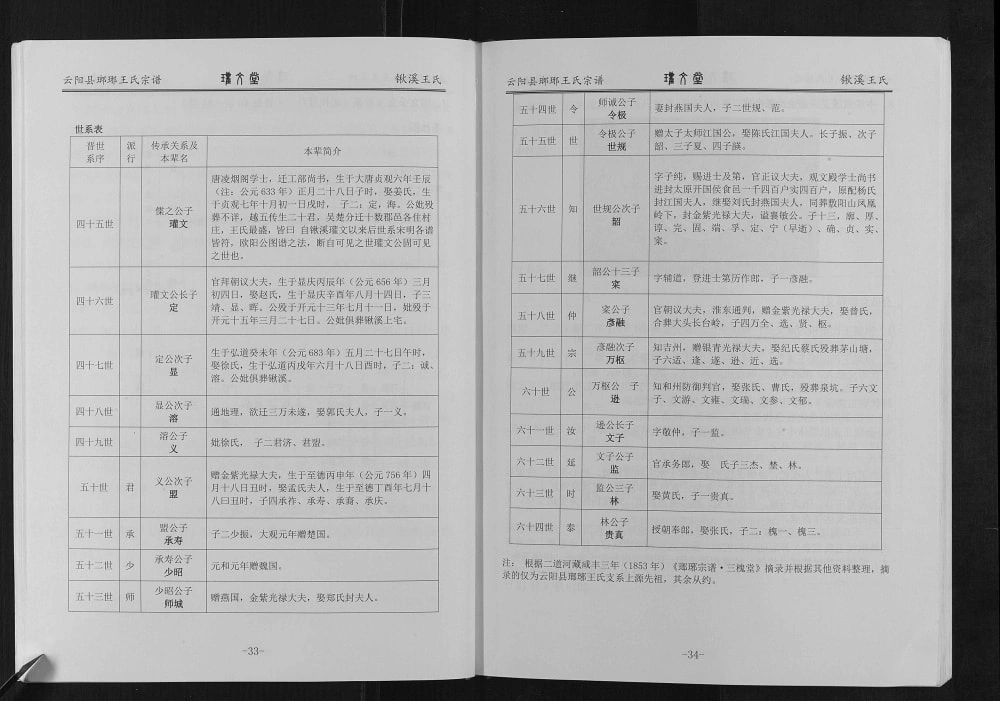 云阳县琅琊王氏宗谱 瓘文堂 锹溪王氏
世系表
普世系序 派行 传承关系及本辈名 本辈简介
四十五世 儀之公子 瓘文
唐凌烟阁学士，迁工部尚书，生于大唐贞观六年壬辰
（注：公元633年）正月二十八日子时，娶姜氏，生
于贞观七年十月初一日戌时， 子二：定，海。公妣殁
葬不详，越五传生二十君，吴楚分迁十数郡邑各住村
庄，王氏最盛，皆曰 自锹溪瓘文以来后世系宋明各谱
皆符，欧阳公图谱之法，断自可见之世瓘文公固可见
之世也。
四十六世 瓘文公长子 定
官拜朝议大夫，生于显庆丙辰年（公元656年）三月
初四日，娶赵氏，生于显庆辛酉年八月十四日，子三
靖、显、晖。公殁于开元十三年七月十一日，妣殁于
开元十五年三月二十七日。公妣俱葬锹溪上宅。
四十七世 定公次子 显
生于弘道癸未年（公元683年）五月二十七日午时，
娶徐氏，生于弘道丙戌年六月十八日酉时，子二：诚、
溶。公妣俱葬锹溪。
四十八世 显公次子 溶
通地理，欲迁三万未遂，娶郭氏夫人，子一义。
四十九世 溶公子 义
妣徐氏， 子二君济、君盟。
五十世 君 义公次子 盟
赠金紫光禄大夫，生于至德丙申年（公元756年）四
月十八日丑时，娶孟氏夫人，生于至德丁酉年七月十
八日丑时，子四承祚、承寿、承裔、承庆。
五十一世 承 盟公子 承寿
子二少振、大观元年赠楚国。
五十二世 少 承寿公子 少昭
元和元年赠魏国。
五十三世 师 少昭公子 师城
赠燕国，金紫光禄大夫，娶郑氏封夫人。
-33-
云阳县琅琊王氏宗谱 瓘文堂 锹溪王氏
五十四世 令 师诚公子 令极
妻封燕国夫人，子二世规、范。
五十五世 世 令极公子 世规
赠太子太师江国公，娶陈氏江国夫人。长子振、次子
韶、三子夏、四子
五十六世 知 世规公次子 韶
字子纯，赐进士及第，官正议大夫，观文殿学士尚书
进封太原开国侯食邑一千四百户实四百户，原配杨氏
封江国夫人，继娶刘氏封燕国夫人，同葬敷阳山凤凰
岭下，封金紫光禄大夫，谥襄敏公。子十三，廓、厚、
谆、完、固、端、孚、定、宁（早逝）、确、贞、实、
寀。
五十七世 继 韶公十三子 寀
字辅道，登进士第历作郎，子一彦融。
五十八世 仲 寀公子 彦融
官朝议大夫，淮东通判，赠金紫光禄大夫，娶曾氏，
合葬大头长台岭，子四万全、选、贤、枢。
五十九世 宗 彦融次子 万枢
知吉州，赠银青光禄大夫，娶纪氏蔡氏殁葬茅山塘，
子六适、逢、遂、逊、近、选。
六十世 公 万枢公 子 逊
知和州防御判官，娶张氏、曹氏，殁葬泉坑。子六文
子、文游、文雍、文瑞、文参、文郁。
六十一世 汝 逊公长子 文子
字敬仲，子一监。
六十二世 延 文子公子 监
官承务郎，娶 氏子三杰、楚、林。
六十三世 时 监公三子 林
娶黄氏，子一贵真。
六十四世 泰 林公子 贵真
授朝奉郎，娶张氏，子二：槐一、槐三。
注： 根据二道河藏咸丰三年（1853年）《瑯琊宗谱·三槐堂》摘录并根据其他资料整理，摘
录的仅为云阳县琅琊王氏支系上源先祖，其余从约。
-34-